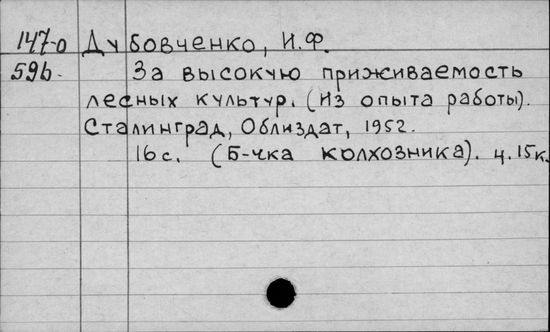 147-0 Дубовченко, И.Ф.
596. За высокую приживаемость
лесных культур. (Из опыта работы).
Сталинград, Облиздат, 1952.
16 с. (Б-чка колхозника). ц. 15 к.